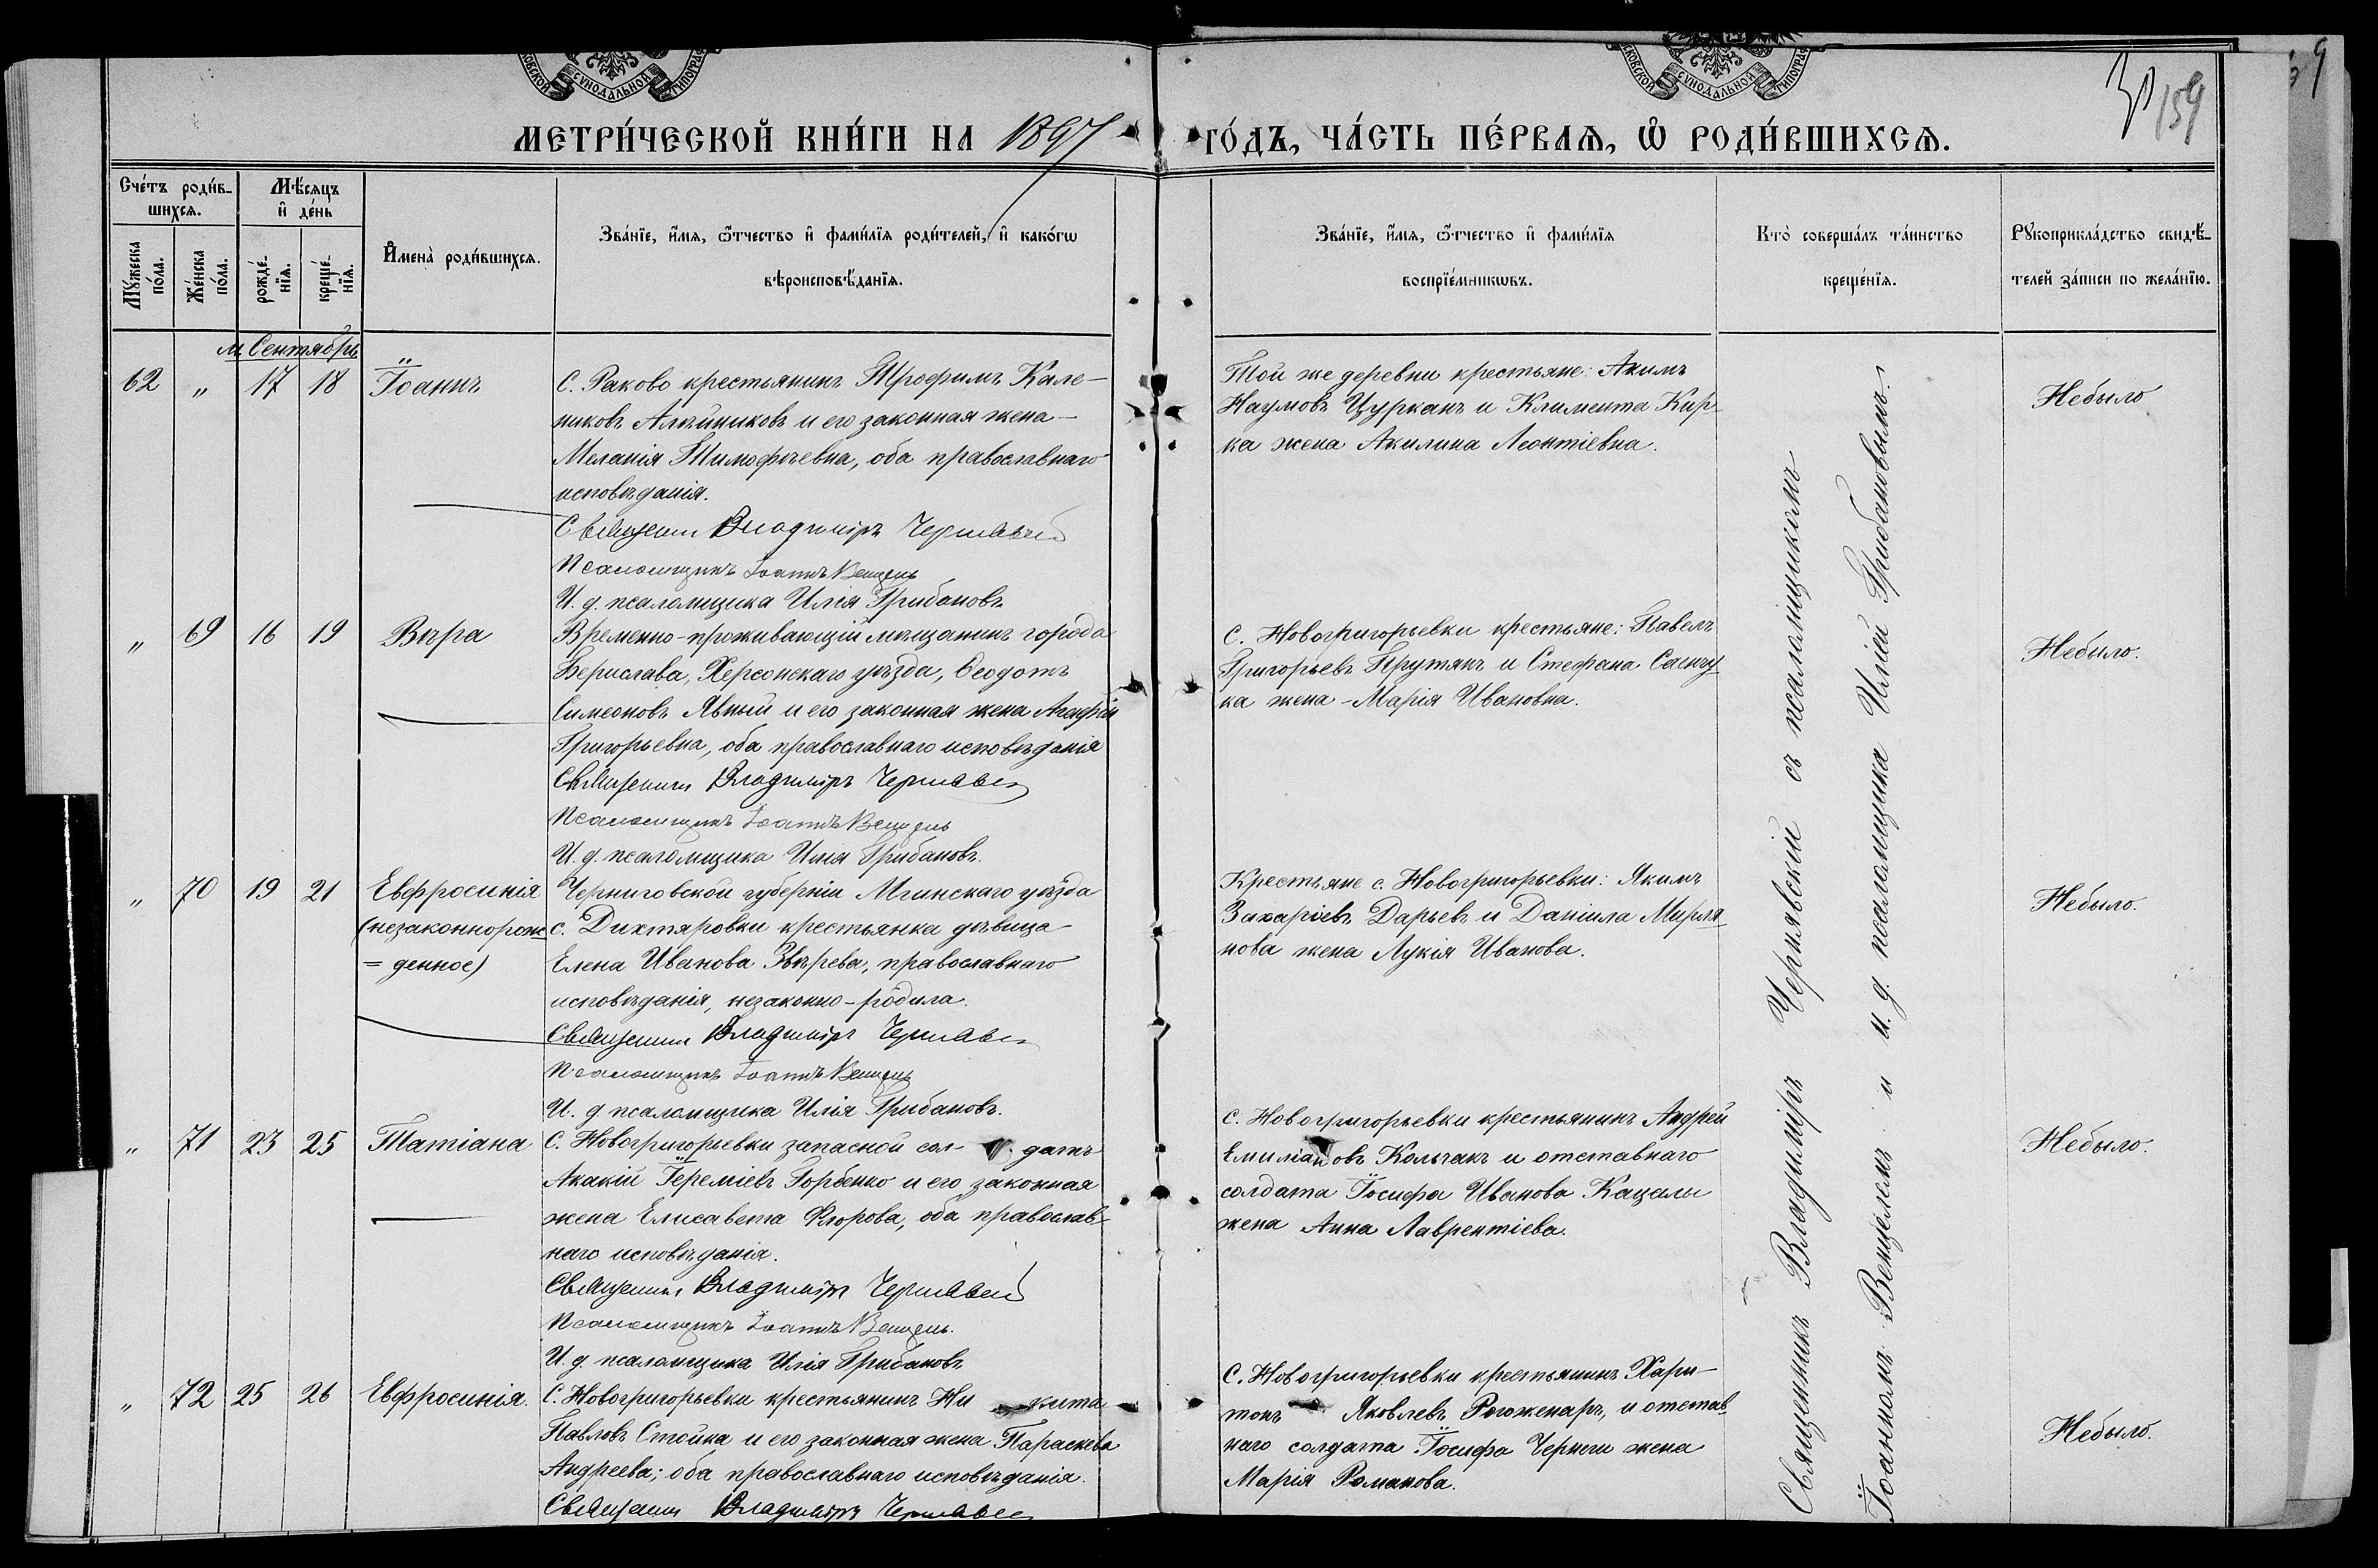 СѴНОДАЛЬНОЙ
СѴНОДАЛЬНОЙ
159
МЕТРИ́ЧЕСКОЙ КНИ́ГИ НА 1897 ГО́ДЪ, ЧА́СТЬ ПЕ́РВАѦ, Ѡ РОДИ́ВШИХСѦ.
Сче́тъ роди́в-
шихсѧ.
Мѣ́сѧцъ
и҆ де́нь
Мꙋ́жеска
по́ла.
Же́нска
по́ла.
рожде́-
нїѧ.
креще́-
нїѧ.
И҆мена̀ роди́вшихсѧ.
Зва́нїе, и҆́мѧ, ѻ҆́тчество и҆ фами́лїѧ роди́телей, и҆ како́гѡ
вѣроисповѣ́данїѧ.
Зва́нїе, и҆́мѧ, ѻ҆́тчество и҆ фами́лїѧ
воспрїе́мникѡвъ.
Кто̀ соверша́лъ та́инство
креще́нїѧ.
Рꙋкоприкла́дство свидѣ́-
телей за́писи по жела́нїю.
м. Сентябрь
62 " 17 18 Іоаннъ
С. Раково крестьянинъ Трофимъ Кале-
никовъ Алейниковъ и его законная жена
Меланія Тимофѣевна, оба православнаго
исповѣданія.
Священникъ Владиміръ Чернявскій
Псаломщикъ Іоаннъ Венцель
И. д. псаломщика Илія Грибановъ.
Той же деревни крестьяне: Акимъ
Наумовъ Цурканъ и Климента Кир-
ка жена Акилина Леонтіевна.
Небыло
" 69 16 19 Вѣра
Временно-проживающій мѣщанинъ города
Берислава, Херсонскаго уѣзда, Ѳеодотъ
Симеоновъ Явный и его законная жена Агафія
Григорьевна, оба православнаго исповѣданія
Священникъ Владиміръ Чернявскій
Псаломщикъ Іоаннъ Венцель
И. д. псаломщика Илія Грибановъ.
С. Новогригорьевки крестьяне: Павелъ
Григорьевъ Прутянъ и Стефана
ка жена - Марія Ивановна.
Небыло.
" 70 19 21 Евфросинія
(незаконнорож-
= денное)
Черниговской губерніи Мглинскаго уѣзда
с. Дихтяровки крестьянка дѣвица
Елена Иванова Звѣрева, православнаго
исповѣданія, незаконно-родила.
Священникъ Владиміръ Чернявскій
Псаломщикъ Іоаннъ Венцель
И. д. псаломщика Илія Грибановъ.
Крестьяне с. Новогригорьевки: Якимъ
Захаріевъ Дарьевъ и Даніила Мирля-
нова жена Лукія Иванова.
Небыло.
" 71 23 25 Татіана
С. Новогригорьевки запасной сол- датъ
Акакій Іереміевъ Горбенко и его законная
жена Елисавета Флорова, оба православ-
наго исповѣданія.
Священникъ Владиміръ Чернявскій
Псаломщикъ Іоаннъ Венцель.
И. д. псаломщика Илія Грибановъ
С. Новогригорьевки крестьянинъ Андрей
Емиліановъ Колчакъ и отставнаго
солдата Іосифа Иванова Кацалы
жена Анна Лаврентіева.
Небыло.
" 72 25 26 Евфросинія.
С. Новогригорьевки крестьянинъ Ни кита
Павловъ Стойка и его законная жена Параскева
Андреева; оба православнаго исповѣданія.
Священникъ Владиміръ Чернявскій
С. Новогригорьевки крестьянинъ Хари-
тонъ Яковлевъ Рогоженарь, и отстав-
наго солдата Іосифа Черныги жена
Марія Романова.
Небыло.
Священникъ Владиміръ Чернявскій съ псаломщикомъ
Іоанномъ Венцелемъ и и. д. псаломщика Иліей Грибановымъ.